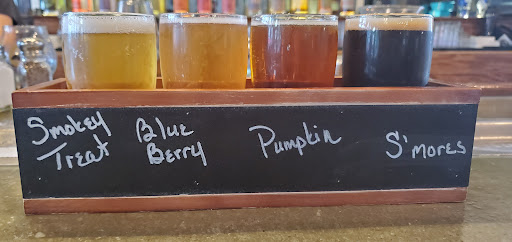 Smokey
Treat
Blue
Berry
Pumpkin
S'mores